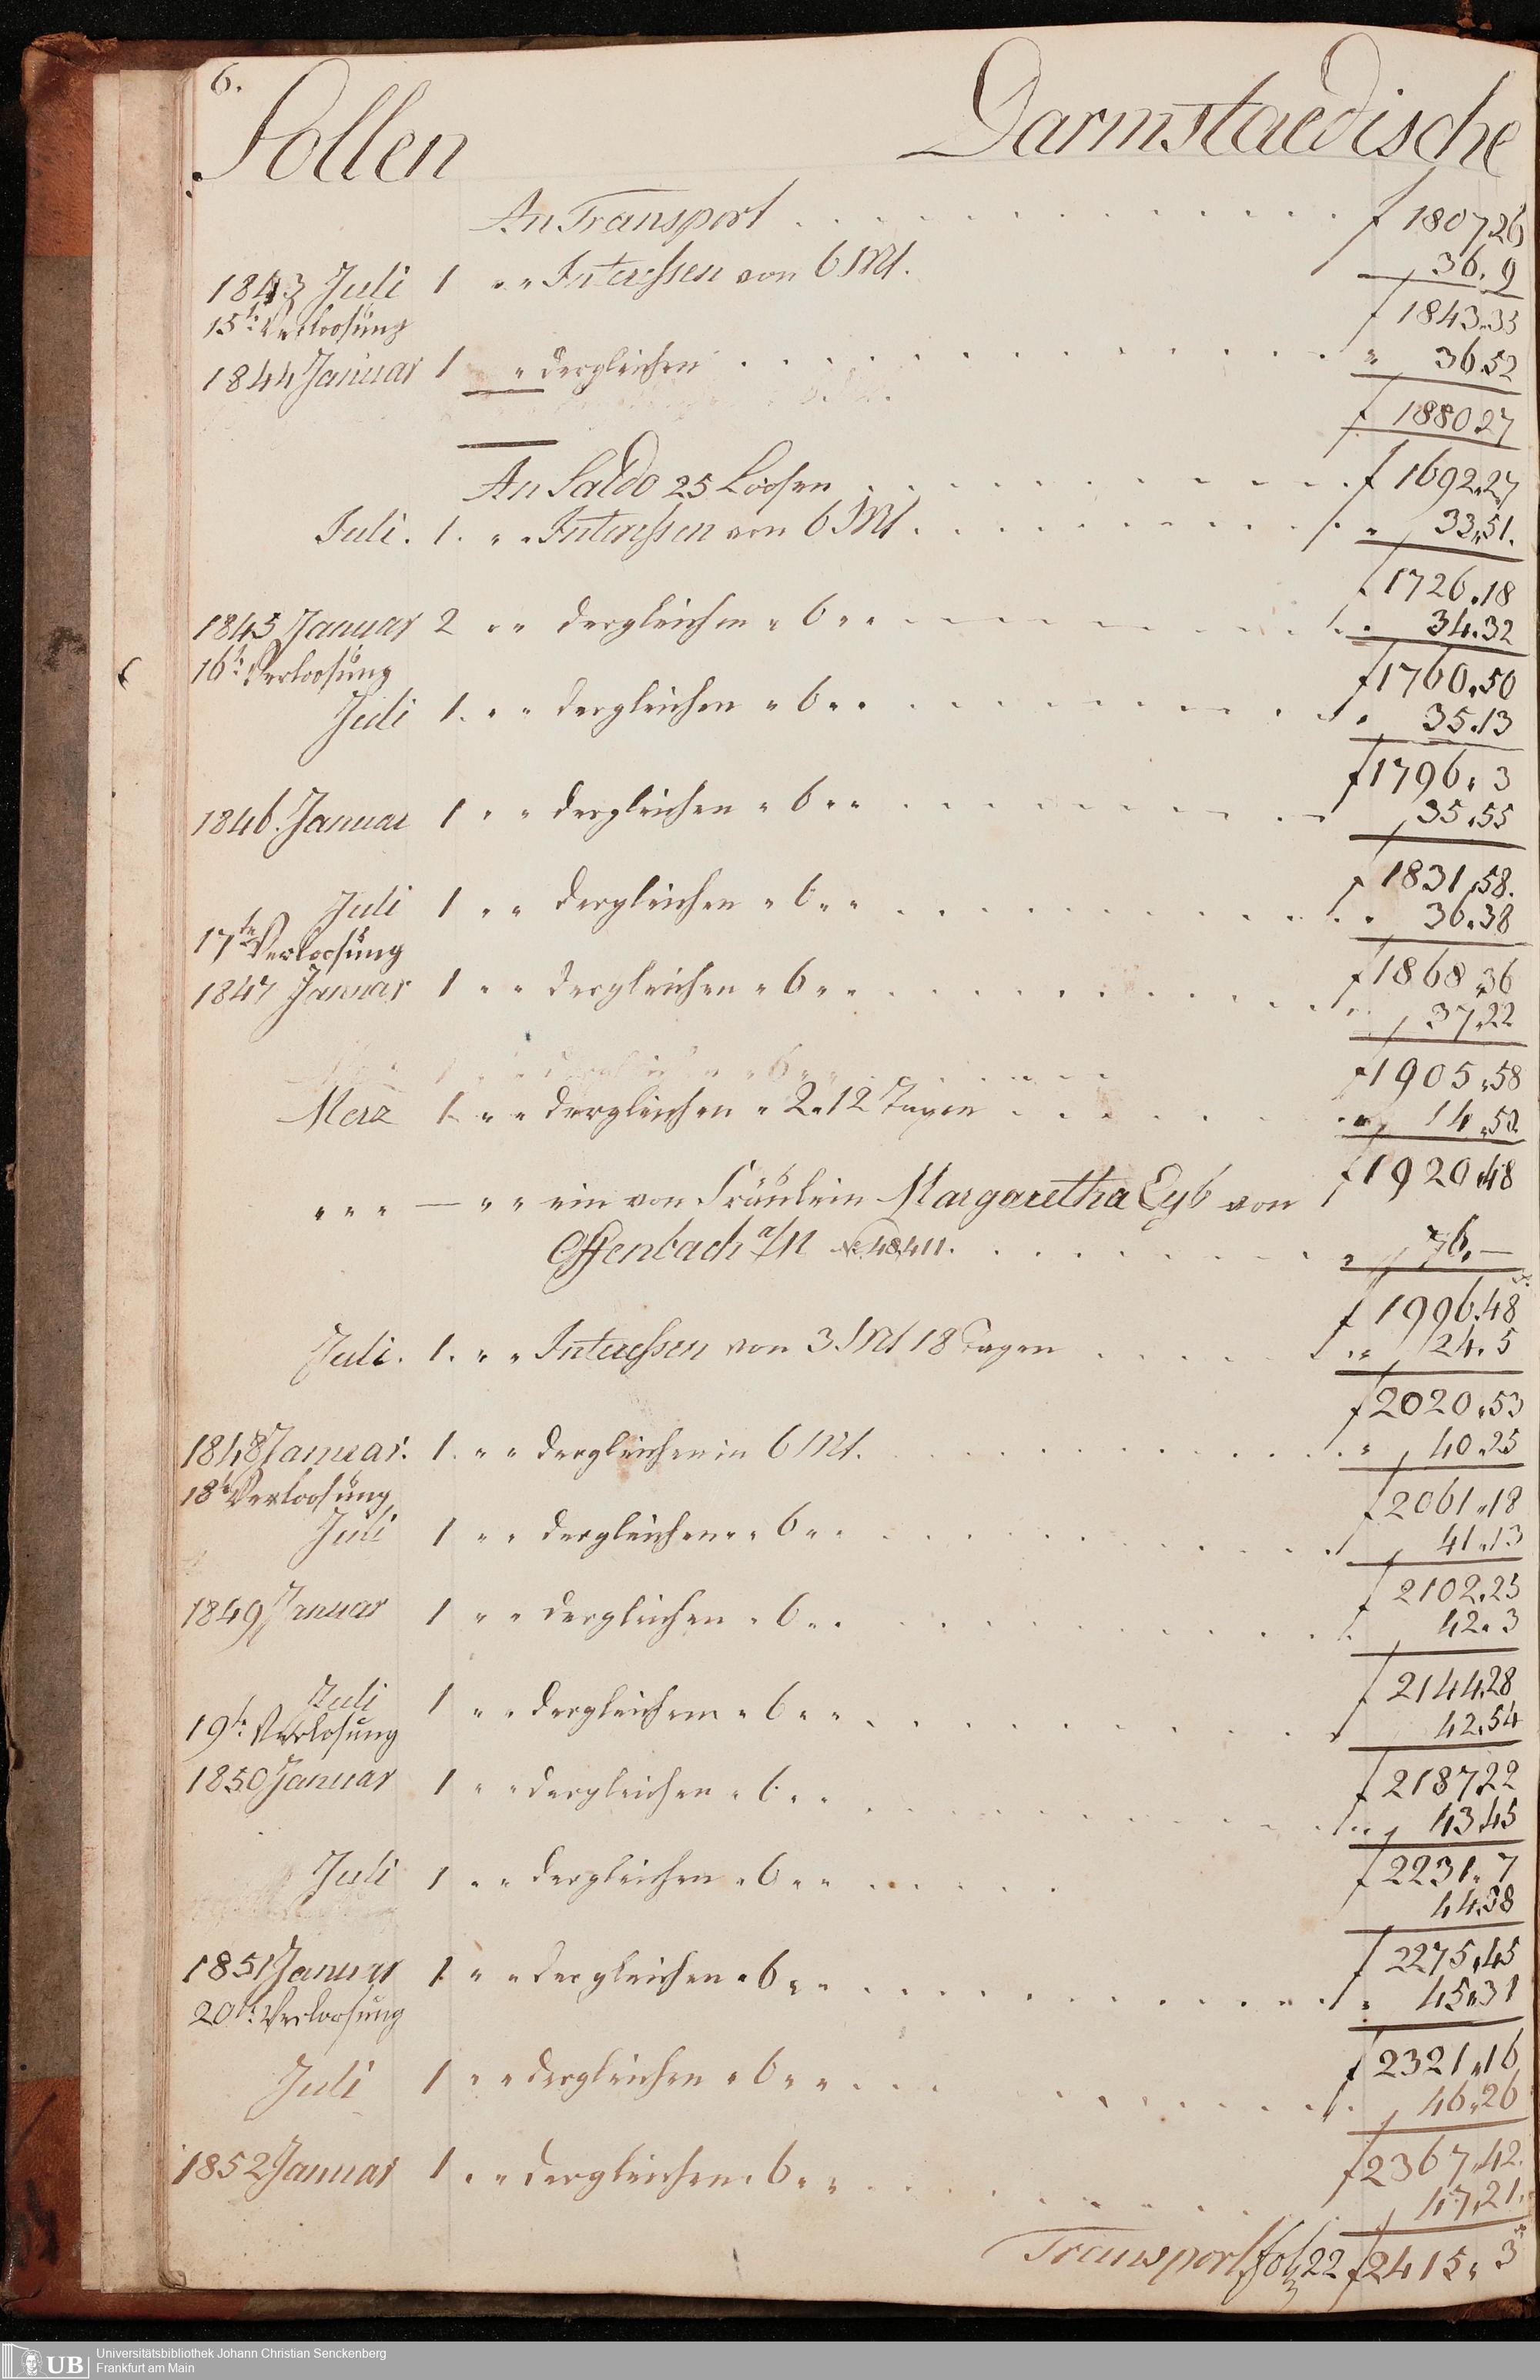 6.
Sollen Darmstaedische
An Transport . . . . . . . . . . . . . . f 1807.26
1843 Juli 1 " " Interessen von 6 Mt. 36. 9
15te Verloosung f 1843.35
1844 Januar 1 " dergleichen . . . . . . . . . . . . . " 36.52
f 1880.27
An Saldo 25 Loosen . . . . . . . . . . . f 1692.27
Juli. 1. " " Interessen von 6 Mt. . . . . . . . . . . " 33.51.
f 1726.18
1845 Januar 2 " " dergleichen " 6 " " . . . . . . . . . 34.32
16te Verloosung f 1760.50
Juli 1. " " dergleichen " 6 " " . . . . . . . . . " 35.13
f 1796. 3
1846. Januar 1 " " dergleichen " 6 " " . . . . . . . . 35.55
f 1831.58.
Juli 1 " " dergleichen " 6 " " . . . . . . . . . . . " 36.38
17te Verloosung
1847 Januar 1 " " dergleichen " 6 " " . . . . . . . . . . f 1868.36
37.22
f 1905.58
Merz 1. " " dergleichen " 2 " 12 Tagen . . . . . . . 14.50
f 1920.48
" " " — " " ein von Fräulein Margaretha Eyb von
Offenbach a/M No 48,411. . . . . . . . . . " 76. —
f 1996.48
Juli. 1. " " Interessen von 3 Mt 18 Tagen . . . . . " 24. 5
f 2020.53
1848 Januar. 1. " " dergleichen in 6 Mt. . . . . . . . . . " 40.25
18te Verloosung f 2061.18
Juli 1 " " dergleichen " " 6 " " . . . . . . . . . . 41.13
f 2102.25
1849 Januar 1 " " dergleichen " 6 " " . . . . . . . . . . 42. 3
f 2144.28
Juli 1 " " dergleichen " 6 " " . . . . . . . . . . 42.54
19te Verlosung
1850 Januar 1 " " dergleichen " 6 " " . . . . . . . . . . f 2187.22
43.45
f 2231. 7
Juli 1 " " dergleichen " 6 " " . . . . . 44.38
f 2275.45
1851 Januar 1 " " dergleichen " 6 " " . . . . . . . . . . . " 45.31
20te Verloosung
f 2321.16
Juli 1 " " dergleichen " 6 " " . . . . . . . . . . 46.26
f 2367.42.
1852 Januar 1 " " dergleichen " 6 " " . . . . . . . . 47.21.
Transport fol 22 f 2415. 3
3
UB Universitätsbibliothek Johann Christian Senckenberg
Frankfurt am Main